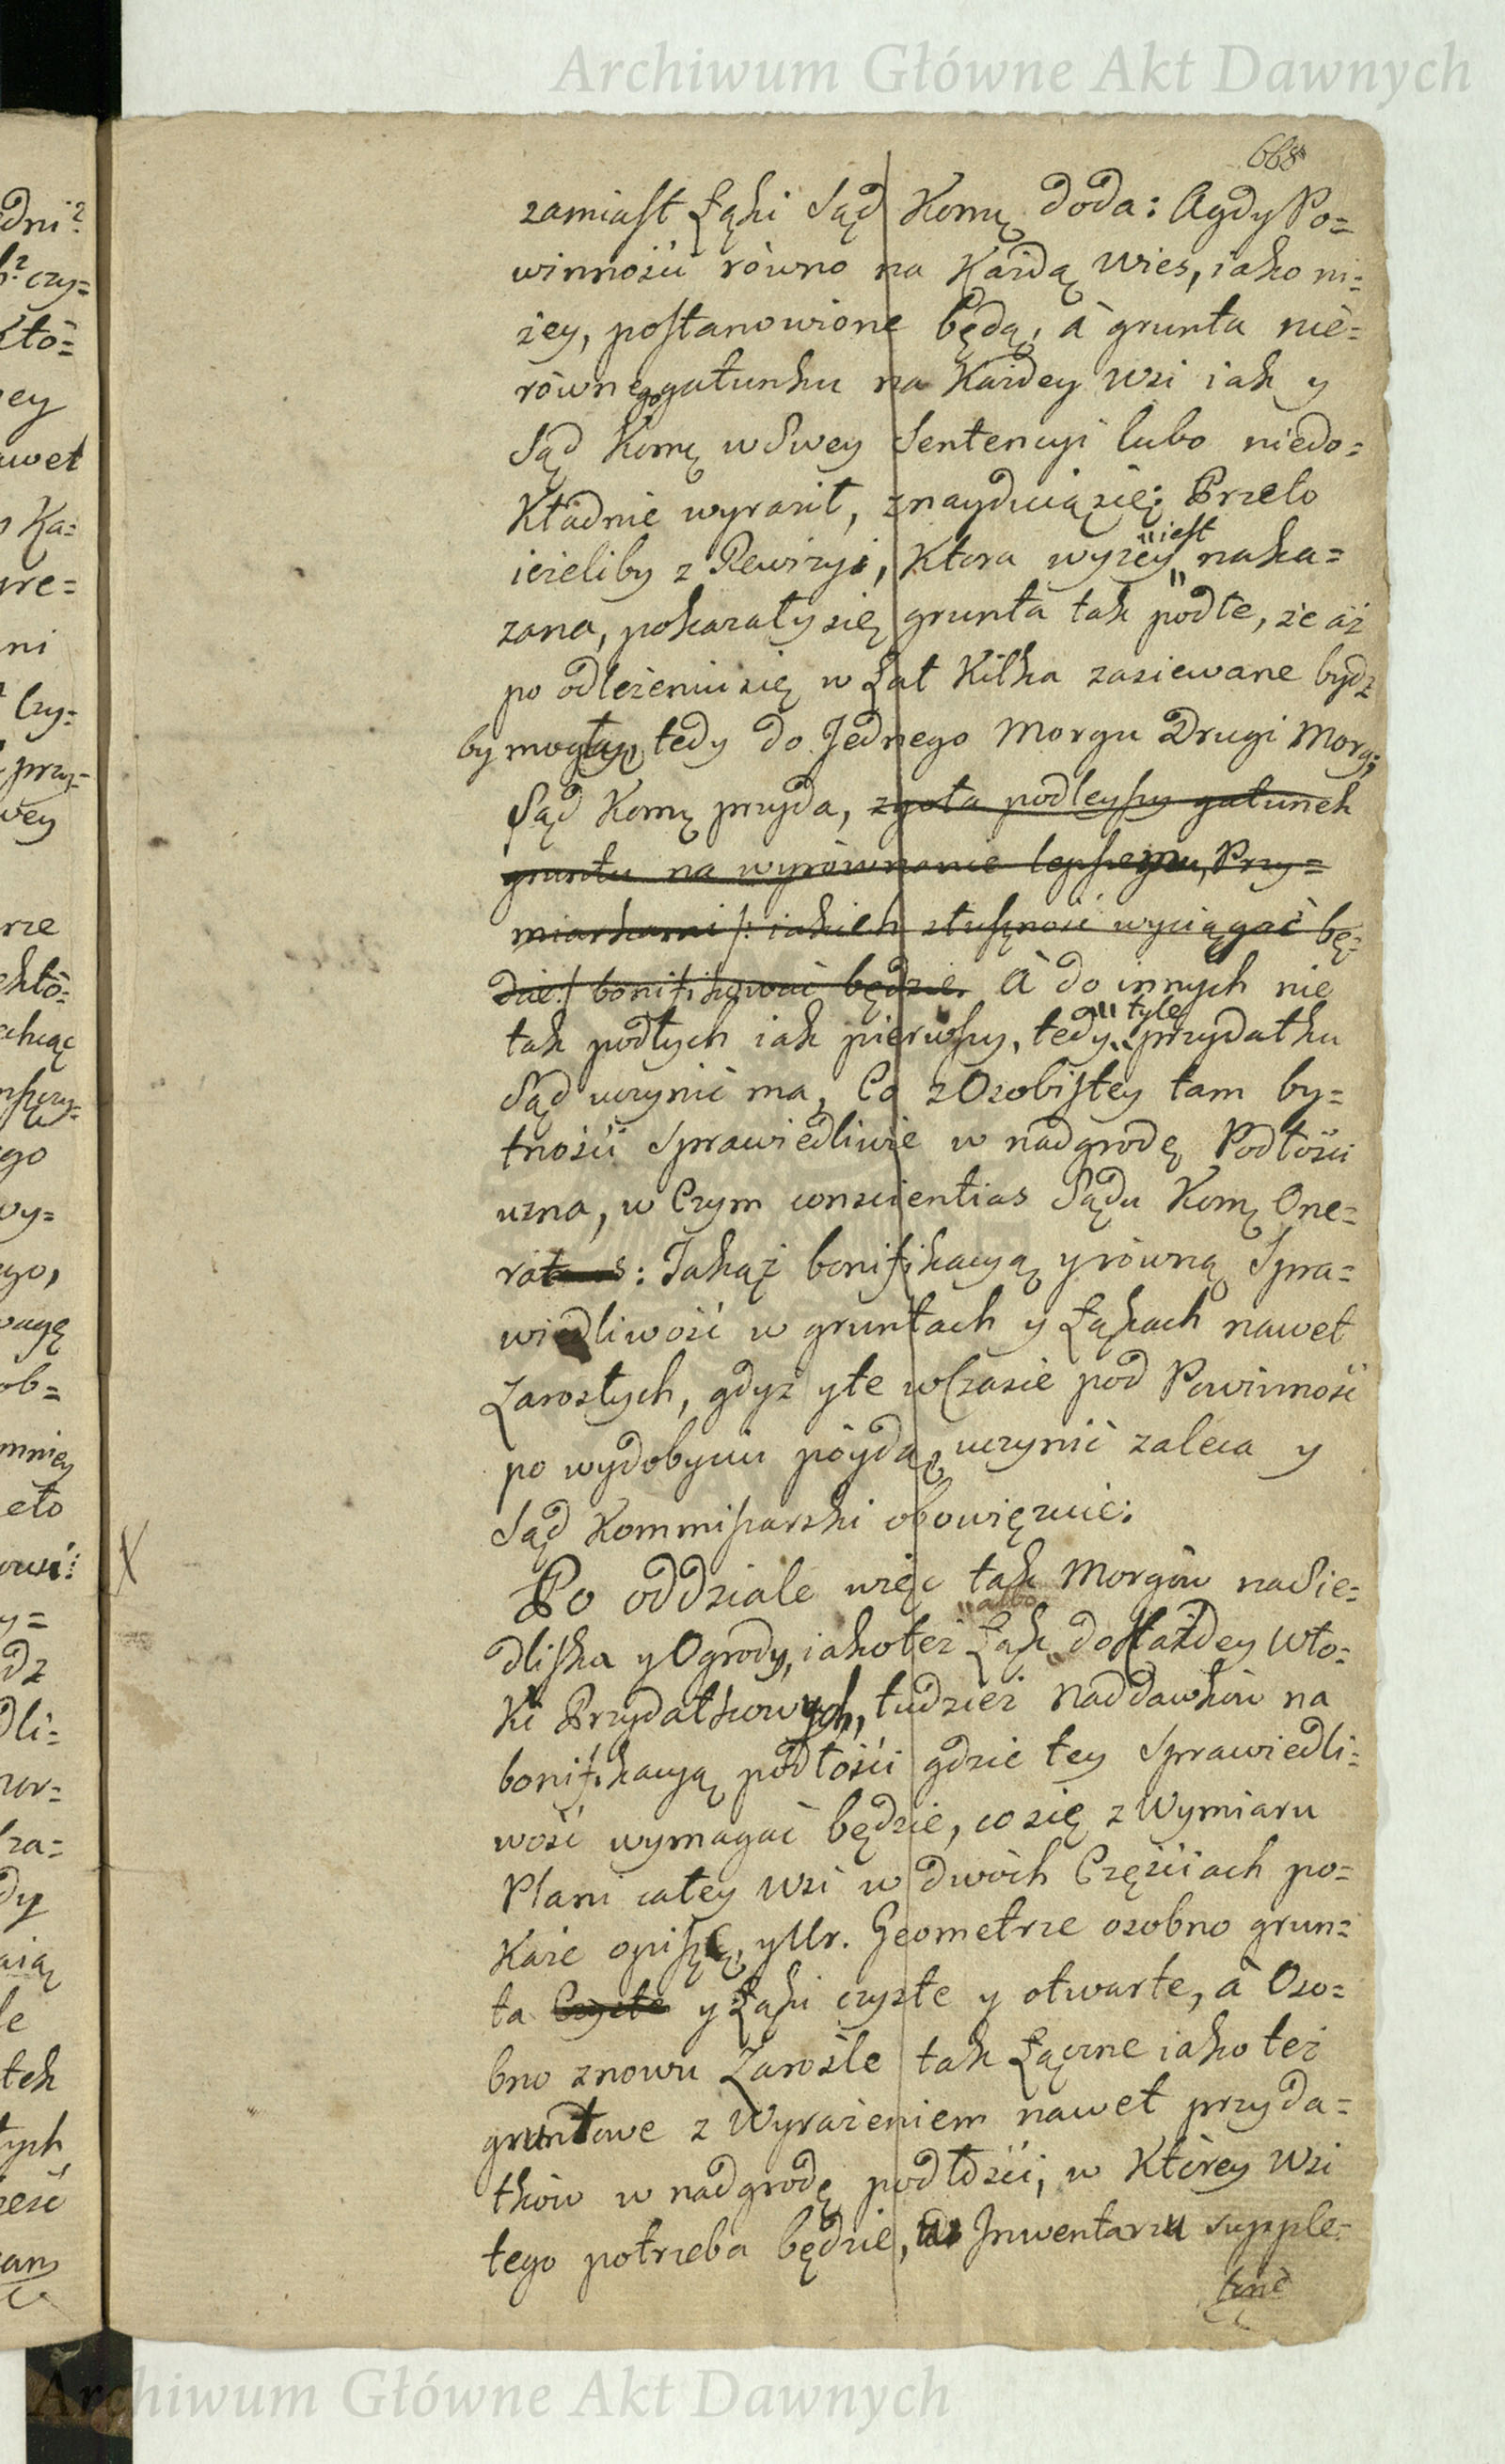 Archiwum Główne Akt Dawnych
668
zamiast Łąki Sąd Komą doda: A gdy Po=
winności równo na Każdą Wies, iako ni=
zey, postanowione będą, à grunta nie=
równego gatunku na Każdey Wsi iak y
Sąd Komą w Swey Sentencyi lubo niedo=
Kładnie wyraził, znayduią się; Przeto
ieżeliby z Rewizyi, Ktora wyżey "iest" naka=
zana, pokazały się grunta tak podłe, że aż
po odleżeniu się w Lat Kilka zasiewane bydz
by mogły, tedy do Jednego Morgu Drugi Morg;
Sąd Komą przyda, zgoła podleyszy gatunek
gruntu na wyrównanie lepszemu, Przy=
miarkami /: iakich słuszność wyciągać bę=
dzie:/ bonifikować będzie. A do innych nie
tak podłych iak pierwszy, tedy "tyle" przydatku
Sąd uczynić ma, Co z Osobistey tam by=
tności Sprawiedliwie w nadgrodę Podłości
uzna, w Czym conscientias Sądu Komą One=
rat: Takąż bonifikacyą y równą Spra=
wiedliwość w gruntach y Łąkach nawet
Zarosłych, gdyż y te w Czasie pod Powinność
po wydobyciu póydą, uczynić zaleca y
Sąd Kommissarski obowięzuie:
Po oddziale więc tak Morgów na Sie=
dliska y Ogrody, iako też "albo" Łąk do Każdey Wło=
Ki Przydatkowych, tudzież Naddawków na
bonifikacyą podłości gdzie tey Sprawiedli=
wość wymagać będzie, co się z Wymiaru
Plani całey Wsi w dwóch Częściach po=
Każe opiszę, y Ur. Geometrze osobno grun=
ta Czyste y Łąki czyste y otwarte, à Oso=
bno znowu Zarośle tak Łączne iako też
gruntowe z Wyrażeniem nawet przyda=
tków w nadgrodę podłości, w Którey Wsi
tego potrzeba będzie, w Inwentarzu supple=
tenć
Archiwum Główne Akt Dawnych